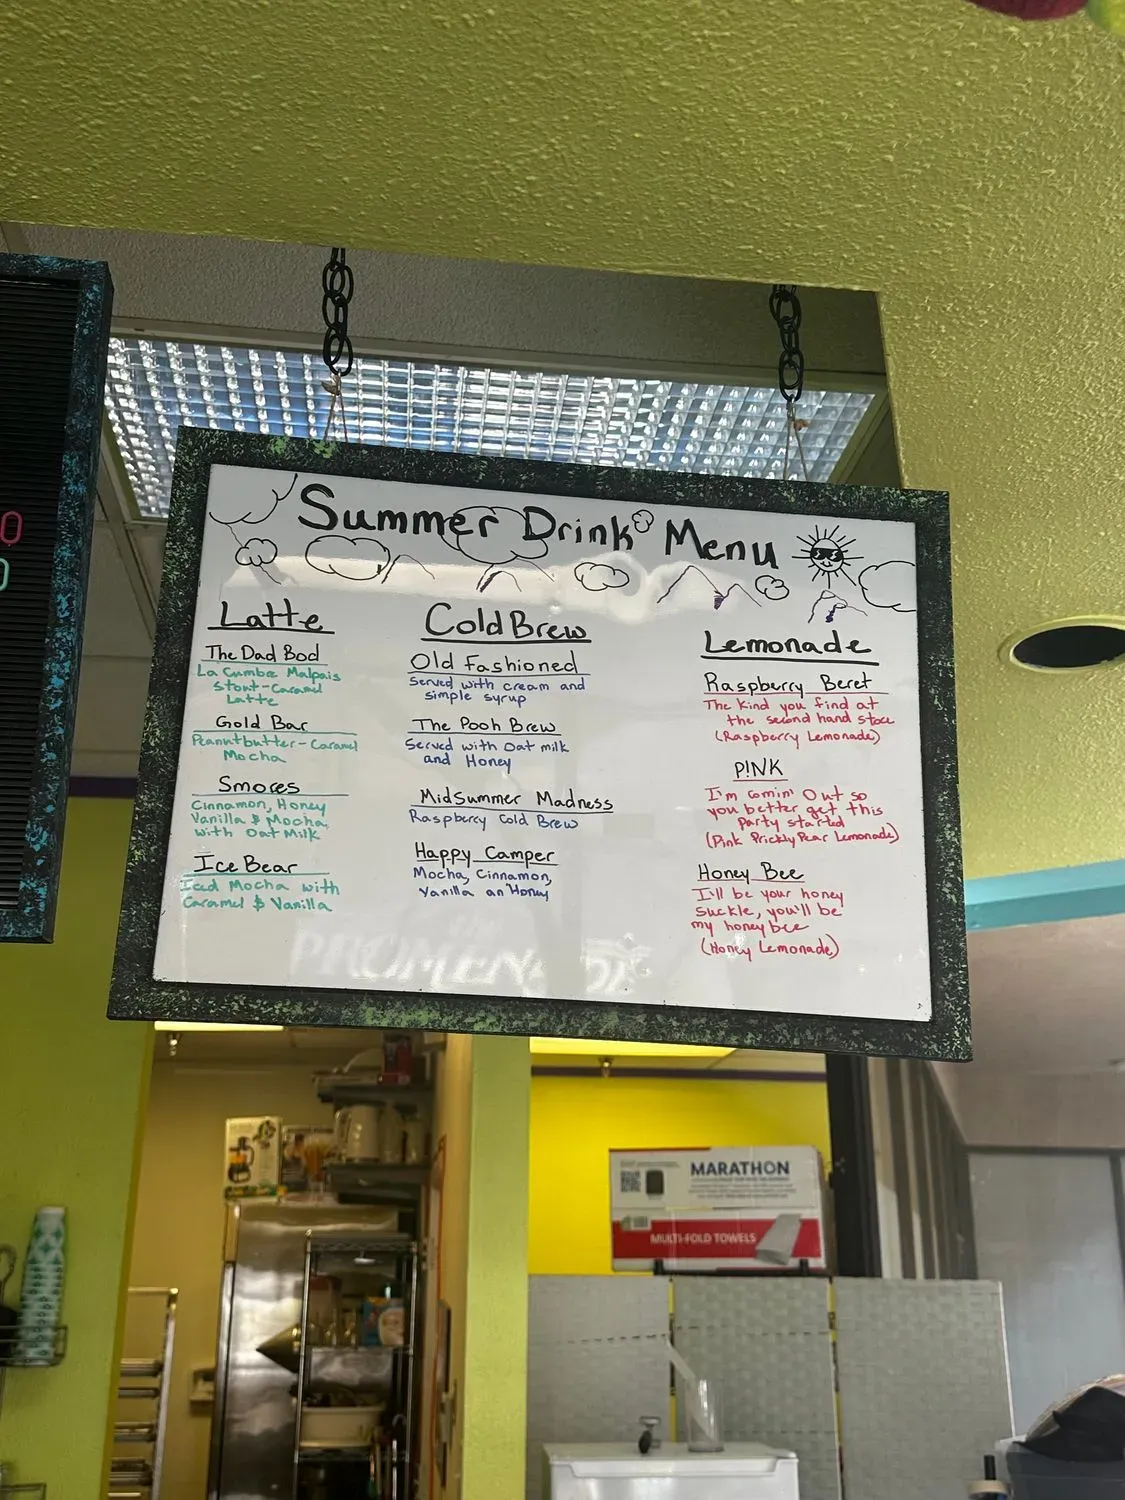 Summer Drink Menu
Latte
The Dad Bod
La Cumbre Malpais
Stout-Caramel
Latte
Gold Bar
Peanutbutter-Caramel
Mocha
Smores
Cinnamon, Honey
Vanilla & Mocha
with Oat Milk
Ice Bear
Iced Mocha with
Caramel & Vanilla
Cold Brew
Old Fashioned
Served with cream and
simple syrup
The Pooh Brew
Served with Oat milk
and Honey
MidSummer Madness
Raspberry Cold Brew
Happy Camper
Mocha, Cinnamon,
Vanilla an Honey
Lemonade
Raspberry Beret
The Kind you find at
the second hand store
(Raspberry Lemonade)
P!NK
I'm comin' Out so
you better get this
Party started
(Pink Prickly Pear Lemonade)
Honey Bee
I'll be your honey
suckle, you'll be
my honey bee
(Honey Lemonade)
PROMENADE
MARATHON
MULTI-FOLD TOWELS